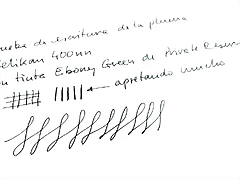 ueba de escritura de la pluma
elikan 400nn
on tinta Ebony Green de Private Reser
apretando mucho